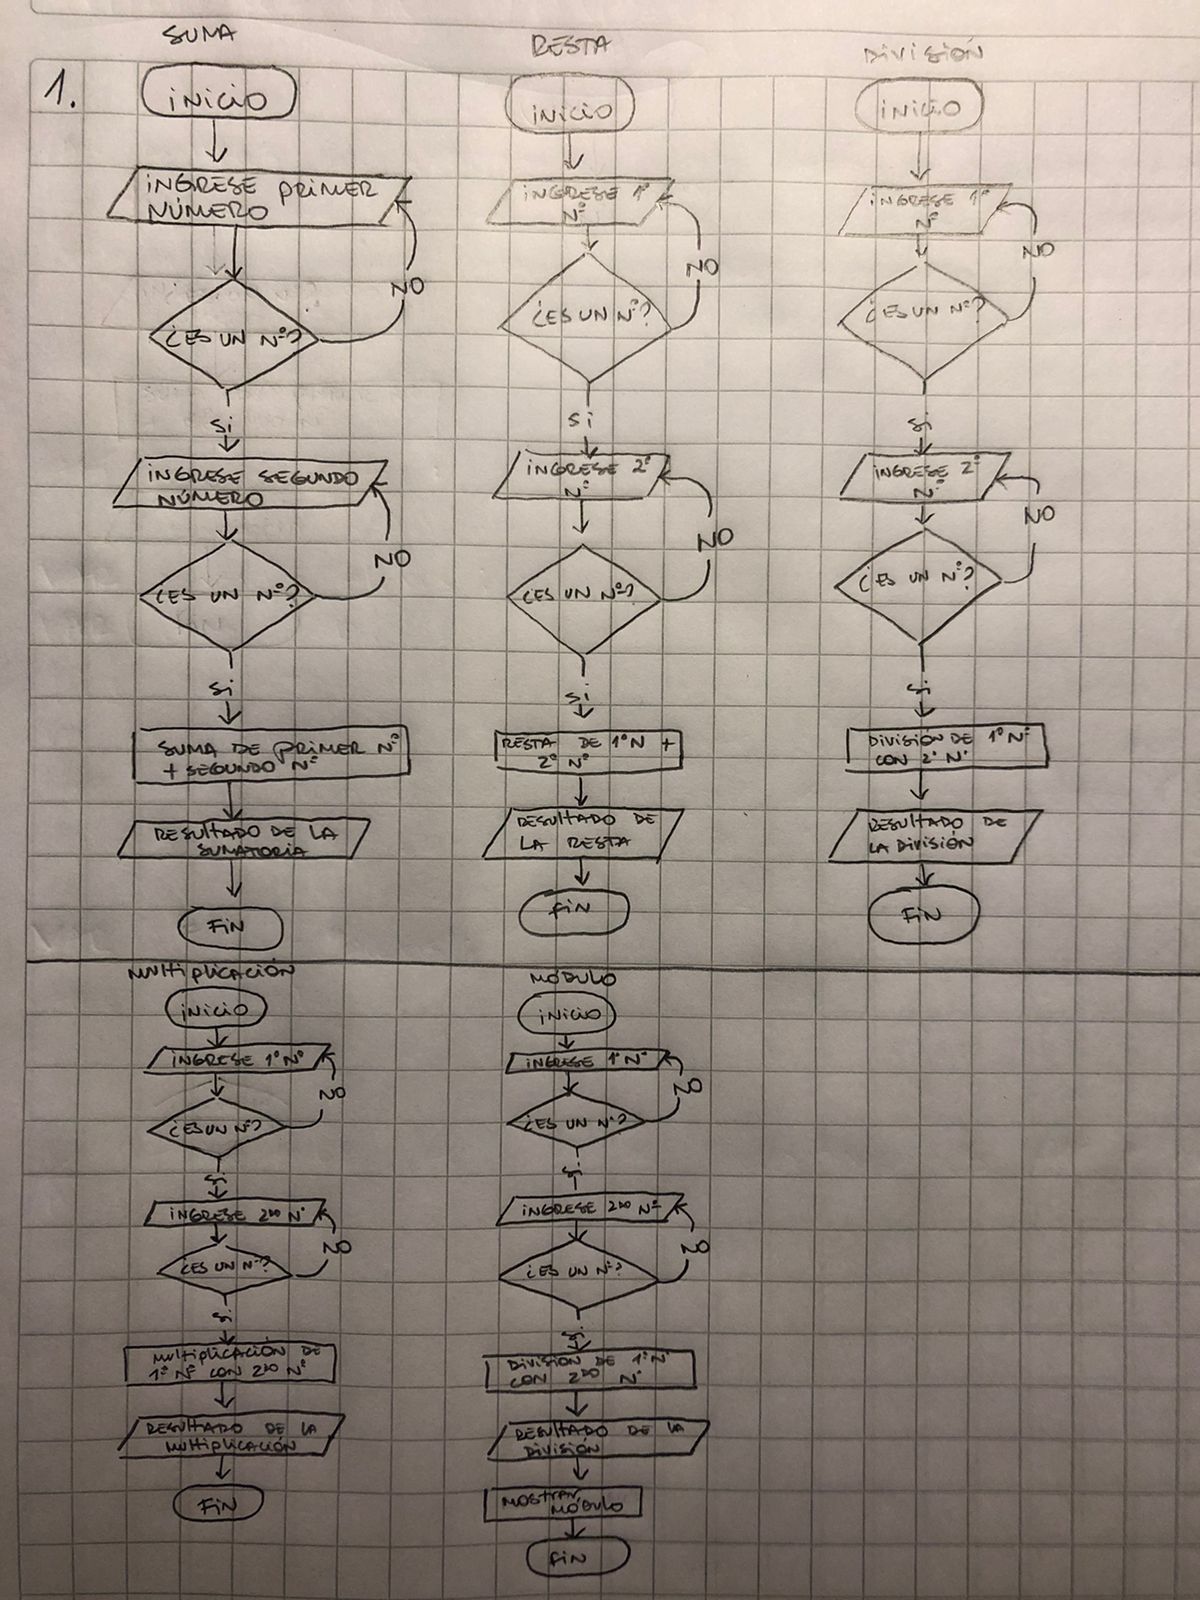 1.
SUMA
INICIO
INGRESE PRIMER
NÚMERO
NO
¿ES UN Nº?
Si
INGRESE SEGUNDO
NÚMERO
NO
¿ES UN Nº?
Si
SUMA DE PRIMER Nº
+ SEGUNDO Nº
RESULTADO DE LA
SUMATORIA
FIN
RESTA
INICIO
INGRESE 1º
Nº
NO
¿ES UN Nº?
Si
INGRESE 2º
Nº
NO
¿ES UN Nº?
Si
RESTA DE 1ºN +
2º Nº
RESULTADO DE
LA RESTA
FIN
DIVISIÓN
INICIO
INGRESE 1º
Nº
NO
¿ES UN Nº?
Si
INGRESE 2º
Nº
NO
¿ES UN Nº?
Si
DIVISIÓN DE 1º Nº
CON 2º Nº
RESULTADO DE
LA DIVISIÓN
FIN
MULTIPLICACIÓN
INICIO
INGRESE 1º Nº
NO
¿ES UN Nº?
Si
INGRESE 2DO Nº
NO
¿ES UN Nº?
Si
MULTIPLICACIÓN DE
1º Nº CON 2DO Nº
RESULTADO DE LA
MULTIPLICACIÓN
FIN
MÓDULO
INICIO
INGRESE 1º Nº
NO
¿ES UN Nº?
Si
INGRESE 2DO Nº
NO
¿ES UN Nº?
Si
DIVISIÓN DE 1º Nº
CON 2DO Nº
RESULTADO DE LA
DIVISIÓN
MOSTRAR
MÓDULO
FIN